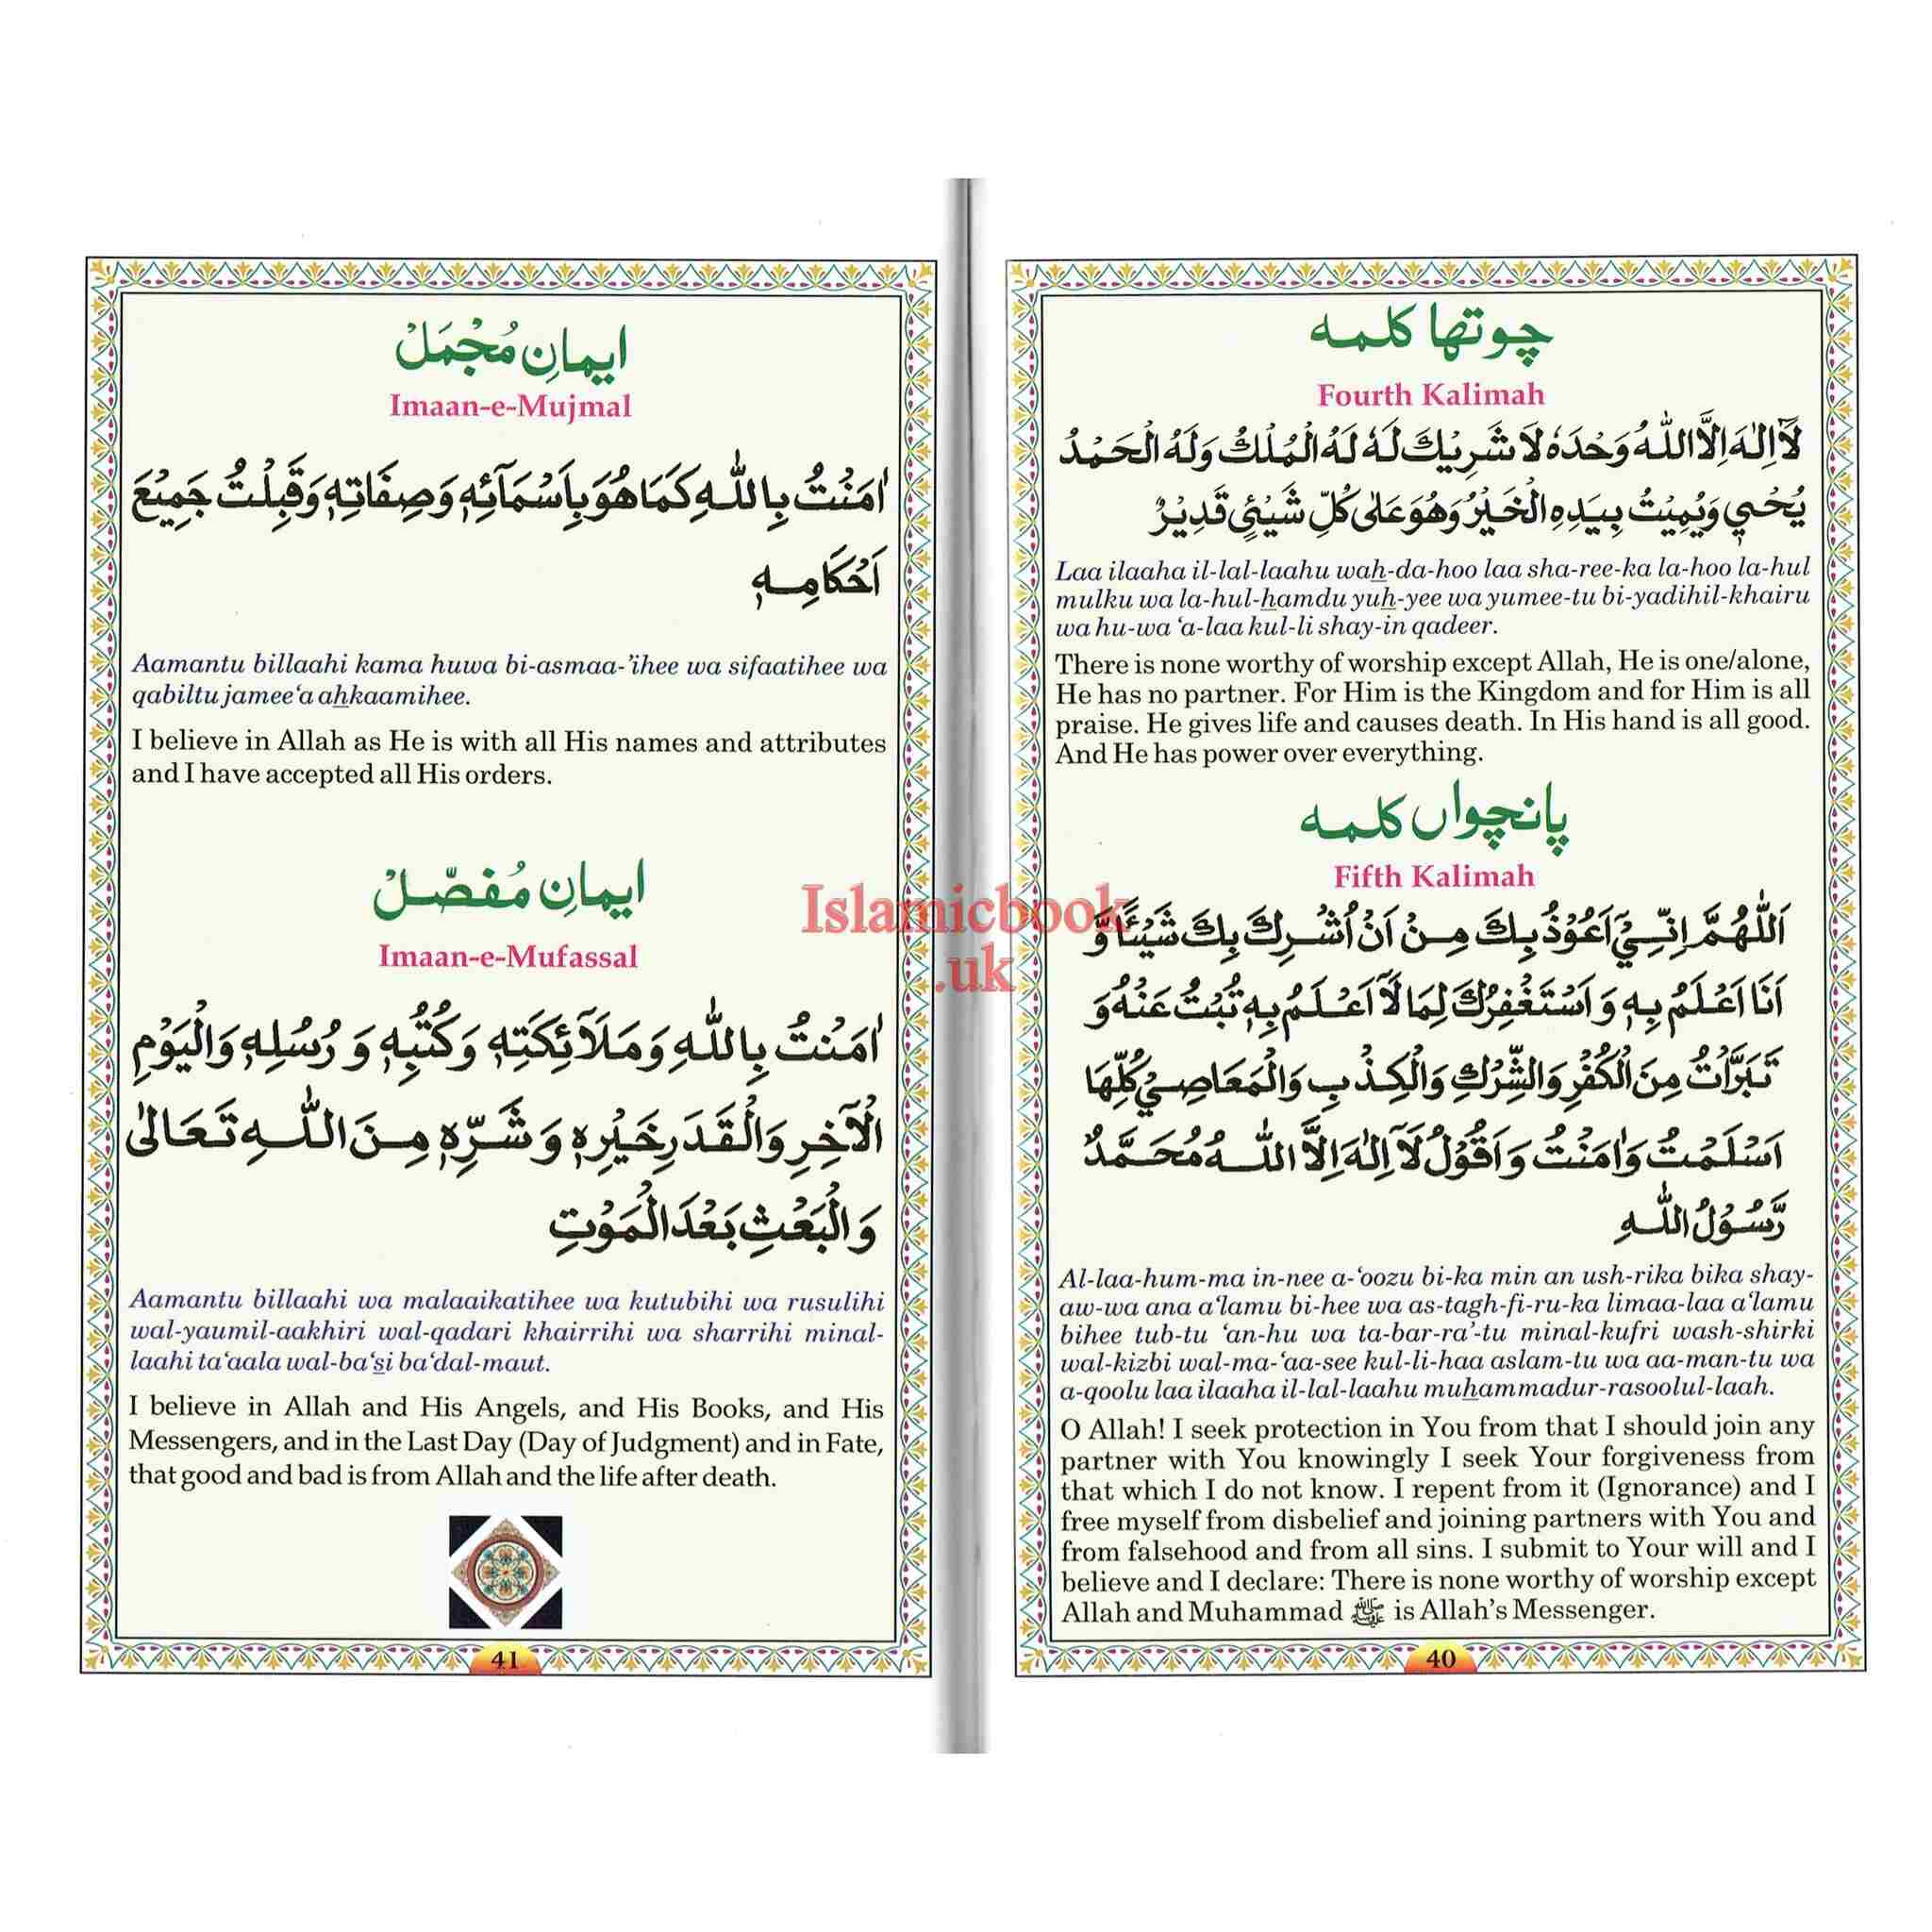 چوتھا کلمہ
Fourth Kalimah
لَآ اِلٰهَ اِلَّا اللّٰهُ وَحْدَهٗ لَا شَرِيْكَ لَهٗ لَهُ الْمُلْكُ وَلَهُ الْحَمْدُ
يُحْيٖ وَيُمِيْتُ بِيَدِهِ الْخَيْرُ وَهُوَ عَلٰى كُلِّ شَيْئٍ قَدِيْرٌ
Laa ilaaha il-lal-laahu wah-da-hoo laa sha-ree-ka la-hoo la-hul
mulku wa la-hul-hamdu yuh-yee wa yumee-tu bi-yadihil-khairu
wa hu-wa ‘a-laa kul-li shay-in qadeer.
There is none worthy of worship except Allah, He is one/alone,
He has no partner. For Him is the Kingdom and for Him is all
praise. He gives life and causes death. In His hand is all good.
And He has power over everything.
پانچواں کلمہ
Fifth Kalimah
اَللّٰهُمَّ اِنِّيْٓ اَعُوْذُ بِكَ مِنْ اَنْ اُشْرِكَ بِكَ شَيْئًا وَّ
اَنَا اَعْلَمُ بِهٖ وَ اَسْتَغْفِرُكَ لِمَا لَآ اَعْلَمُ بِهٖ تُبْتُ عَنْهُ وَ
تَبَرَّاْتُ مِنَ الْكُفْرِ وَالشِّرْكِ وَالْكِذْبِ وَالْمَعَاصِيْ كُلِّهَا
اَسْلَمْتُ وَاٰمَنْتُ وَ اَقُوْلُ لَآ اِلٰهَ اِلَّا اللّٰهُ مُحَمَّدٌ
رَّسُوْلُ اللّٰهِ
Al-laa-hum-ma in-nee a-‘oozu bi-ka min an ush-rika bika shay-
aw-wa ana a‘lamu bi-hee wa as-tagh-fi-ru-ka limaa-laa a‘lamu
bihee tub-tu ‘an-hu wa ta-bar-ra’-tu minal-kufri wash-shirki
wal-kizbi wal-ma-‘aa-see kul-li-haa aslam-tu wa aa-man-tu wa
a-qoolu laa ilaaha il-lal-laahu muhammadur-rasoolul-laah.
O Allah! I seek protection in You from that I should join any
partner with You knowingly I seek Your forgiveness from
that which I do not know. I repent from it (Ignorance) and I
free myself from disbelief and joining partners with You and
from falsehood and from all sins. I submit to Your will and I
believe and I declare: There is none worthy of worship except
Allah and Muhammad ﷺ is Allah’s Messenger.
40
ایمانِ مُجْمَلْ
Imaan-e-Mujmal
اٰمَنْتُ بِاللّٰهِ كَمَا هُوَ بِاَسْمَآئِهٖ وَصِفَاتِهٖ وَقَبِلْتُ جَمِيْعَ
اَحْكَامِهٖ
Aamantu billaahi kama huwa bi-asmaa-’ihee wa sifaatihee wa
qabiltu jamee‘a ahkaamihee.
I believe in Allah as He is with all His names and attributes
and I have accepted all His orders.
ایمانِ مُفصّلْ
Imaan-e-Mufassal
اٰمَنْتُ بِاللّٰهِ وَمَلَآئِكَتِهٖ وَكُتُبِهٖ وَ رُسُلِهٖ وَالْيَوْمِ
الْاٰخِرِ وَالْقَدَرِ خَيْرِهٖ وَ شَرِّهٖ مِنَ اللّٰهِ تَعَالٰى
وَالْبَعْثِ بَعْدَ الْمَوْتِ
Aamantu billaahi wa malaaikatihee wa kutubihi wa rusulihi
wal-yaumil-aakhiri wal-qadari khairrihi wa sharrihi minal-
laahi ta‘aala wal-ba‘si ba‘dal-maut.
I believe in Allah and His Angels, and His Books, and His
Messengers, and in the Last Day (Day of Judgment) and in Fate,
that good and bad is from Allah and the life after death.
41
Islamicbook
.uk